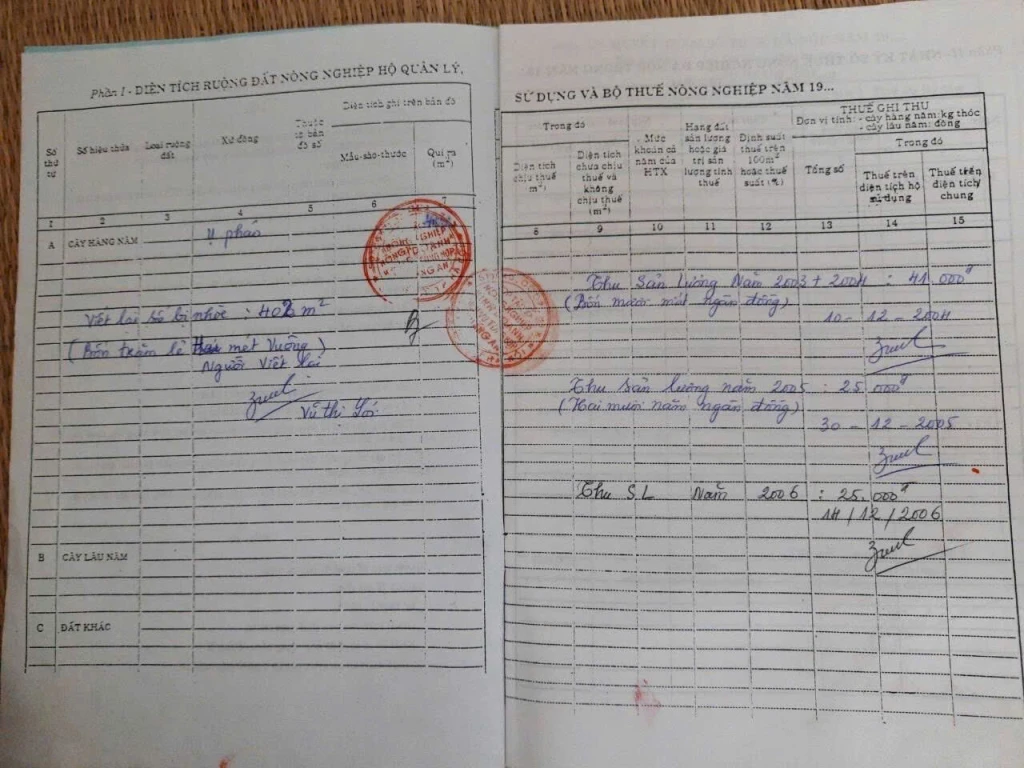 Phần I - DIỆN TÍCH RUỘNG ĐẤT NÔNG NGHIỆP HỘ QUẢN LÝ,
Số thứ tự
Số hiệu thửa
Loại ruộng đất
Xứ đồng
Thuộc tờ bản đồ số
Diện tích ghi trên bản đồ
Mẫu-sào-thước
Qui ra (m²)
1 2 3 4 5 6 7
A CÂY HÀNG NĂM
Viết lại số bị nhòe : 402 m²
(Bốn trăm lẻ Hai mét vuông)
Người viết lại
Vũ Thị
B CÂY LÂU NĂM
C ĐẤT KHÁC
SỬ DỤNG VÀ BỘ THUẾ NÔNG NGHIỆP NĂM 19...
Trong đó
Diện tích chịu thuế m²)
Diện tích chưa chịu thuế và không chịu thuế (m²)
Mức khoán cả năm của HTX
Hạng đất sản lượng hoặc giá trị sản lượng tính thuế
Định suất thuế trên 100m² hoặc thuế suất (%)
THUẾ GHI THU
Đơn vị tính: - cây hàng năm: kg thóc
- cây lâu năm: đồng
Tổng số
Trong đó
Thuế trên diện tích hộ sử dụng
Thuế trên diện tích chung
8 9 10 11 12 13 14 15
Thu Sản Lượng Năm 2003 + 2004 : 41.000đ
(Bốn mươi mốt ngàn đồng)
10 - 12 - 2004
Thu sản lượng năm 2005 : 25.000đ
(Hai mươi năm ngàn đồng)
30 - 12 - 2005
Thu S.L Năm 2006 : 25.000đ
14 / 12 / 2006